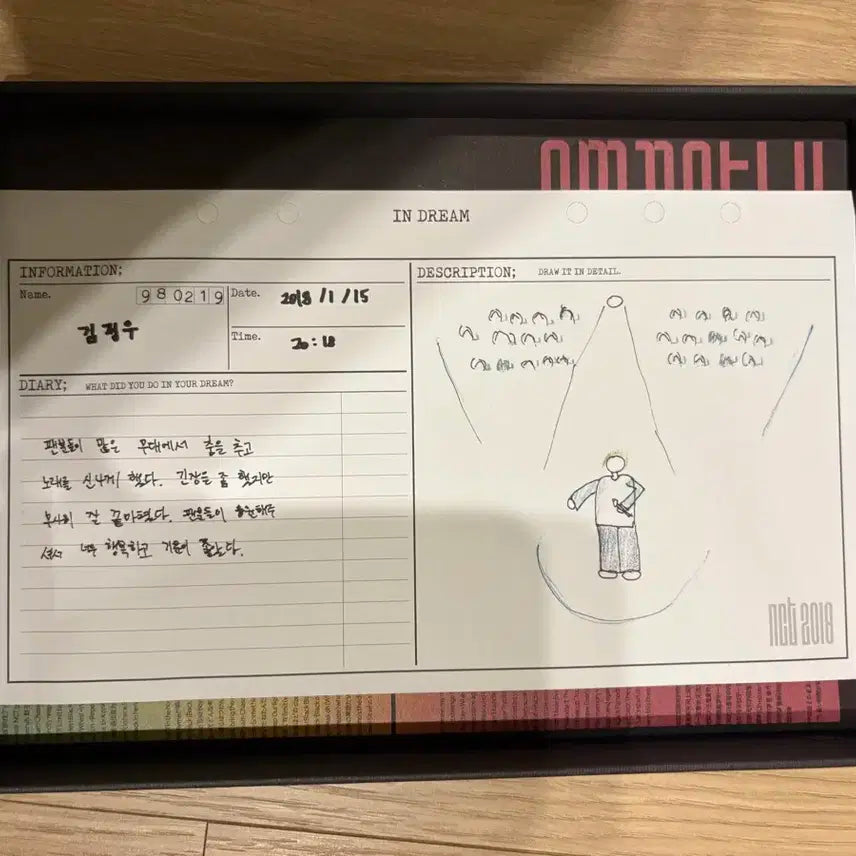 EMPATHY
IN DREAM
INFORMATION;
Name.
980219
김정우
Date.
2018/1/15
Time.
20:18
DIARY; WHAT DID YOU DO IN YOUR DREAM?
팬분들이 많은 무대에서 춤을 추고
노래를 신나게 했다. 긴장은 좀 했지만
무사히 잘 끝마쳤다. 팬분들이 응원해주
셔서 너무 행복하고 기분이 좋았다.
DESCRIPTION; DRAW IT IN DETAIL.
nct 2018